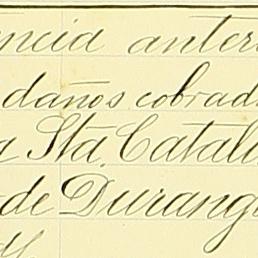 ncia anter
daños cobrad
a Sta. Catali
de Durang